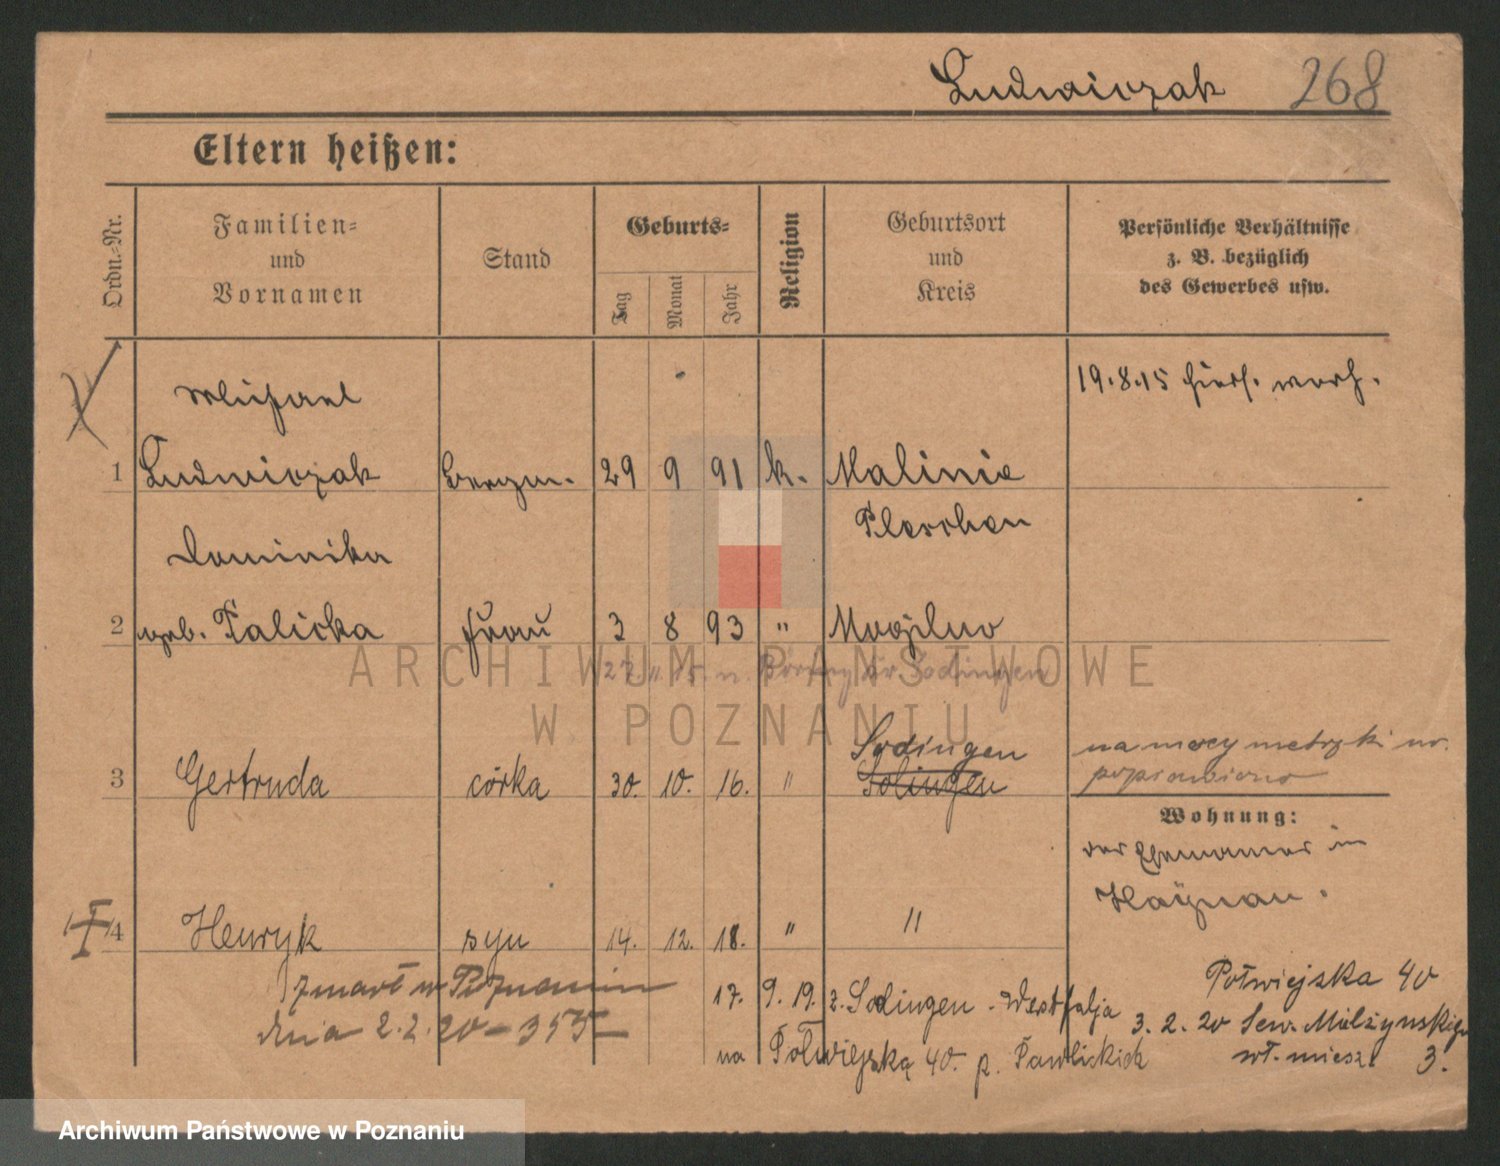 Ludwiczak 268
Eltern heißen:
Ordn.-Nr.
Familien-
und
Vornamen
Stand
Geburts-
Tag
Monat
Jahr
Religion
Geburtsort
und
Kreis
Persönliche Verhältnisse
z. B. bezüglich
des Gewerbes usw.
Michael 19.8.15 hiers. verh.
1 Ludwiczak Bergm. 29 9 91 k. Malinie
Pleschen
Dominika
2 geb. Palicka Frau 3 8 93 "
ARCHIWUM PAŃSTWOWE
W POZNANIU
Sodingen na mocy metryki ur.
3 Gertruda córka 30. 10. 16. " Solingen poprawiono
Wohnung:
der Ehemänner in
Haynau.
4 Henryk syn 14. 12. 18. " "
zmarł w Poznaniu
dnia 2.2.20 - 355
17. 9. 19. z Sodingen - Westfalja
na Półwiejską 40. p. Pawlickich
Półwiejska 40
3. 2. 20 Sew. Mielżyńskiego
wł. miesz. 3.
Archiwum Państwowe w Poznaniu